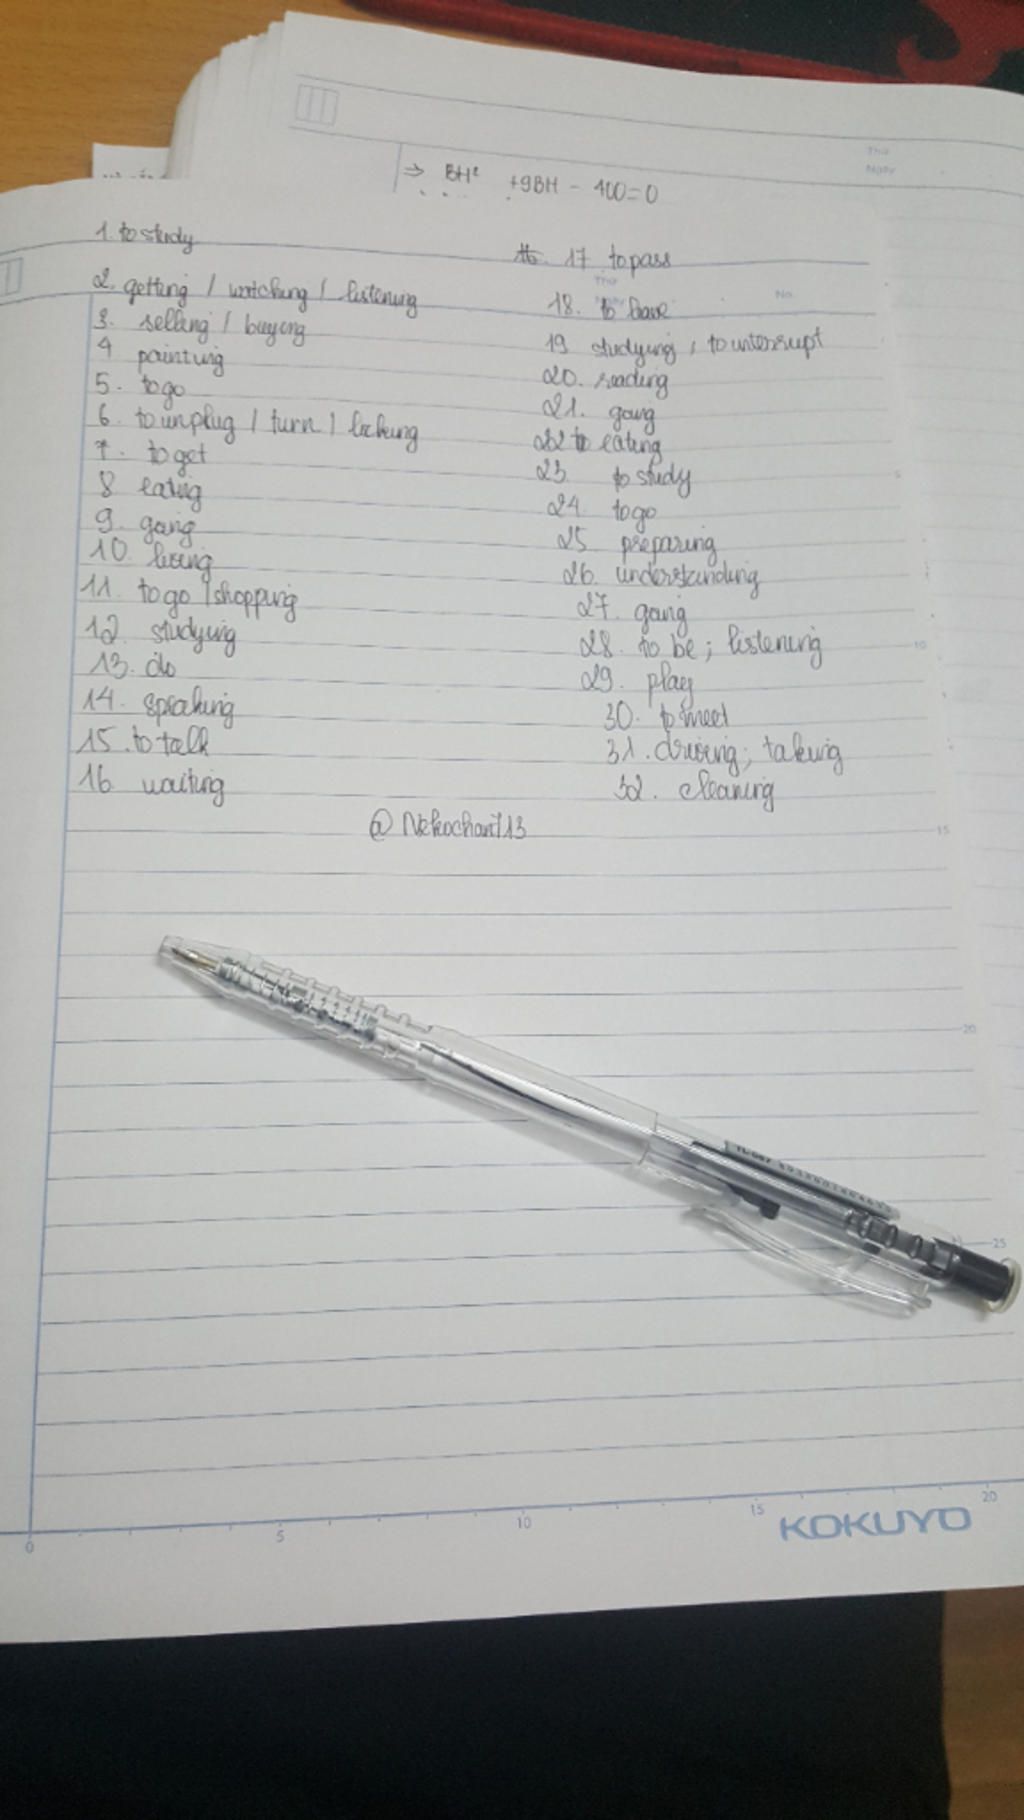 ⇒ BH² +9BH - 400=0
Thứ
Ngày
1. to study
2. getting / watching / listening
3. selling / buying
4 painting
5. to go
6. to unplug / turn / locking
7. to get
8 eating
9. going
10. living
11. to go / shopping
12 studying
13. do
14. speaking
15. to talk
16. waiting
17 to pass
Thứ
No.
18. to have
19 studying , to interrupt
20. reading
21. going
22 to eating
23. to study
24. to go
25 preparing
26. understanding
27. going
28. to be ; listening
29. play
30. to meet
31. driving; taking
32. cleaning
@Nekochan713
5
10
15
20
25
TL-087
0 5 10 15 20
KOKUYO